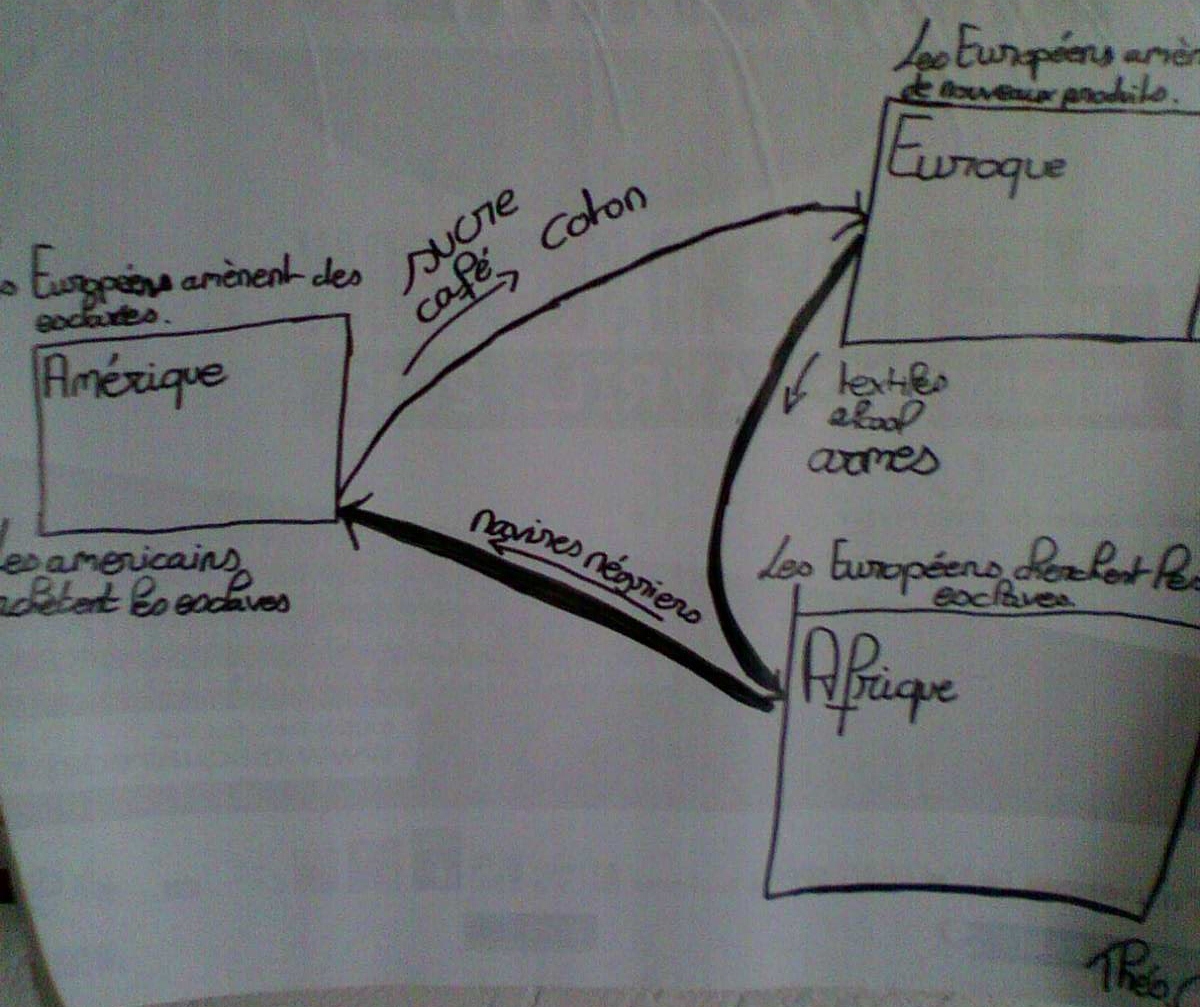 Les Européens amèn
de nouveaux produits.
Euroque
sucre
café
coton
Européens amènent des
esclaves.
Amérique
textiles
alcool
armes
navires négriers
Les americains
achètent les esclaves
Les Européens cherchent les
esclaves
Afrique
Théo